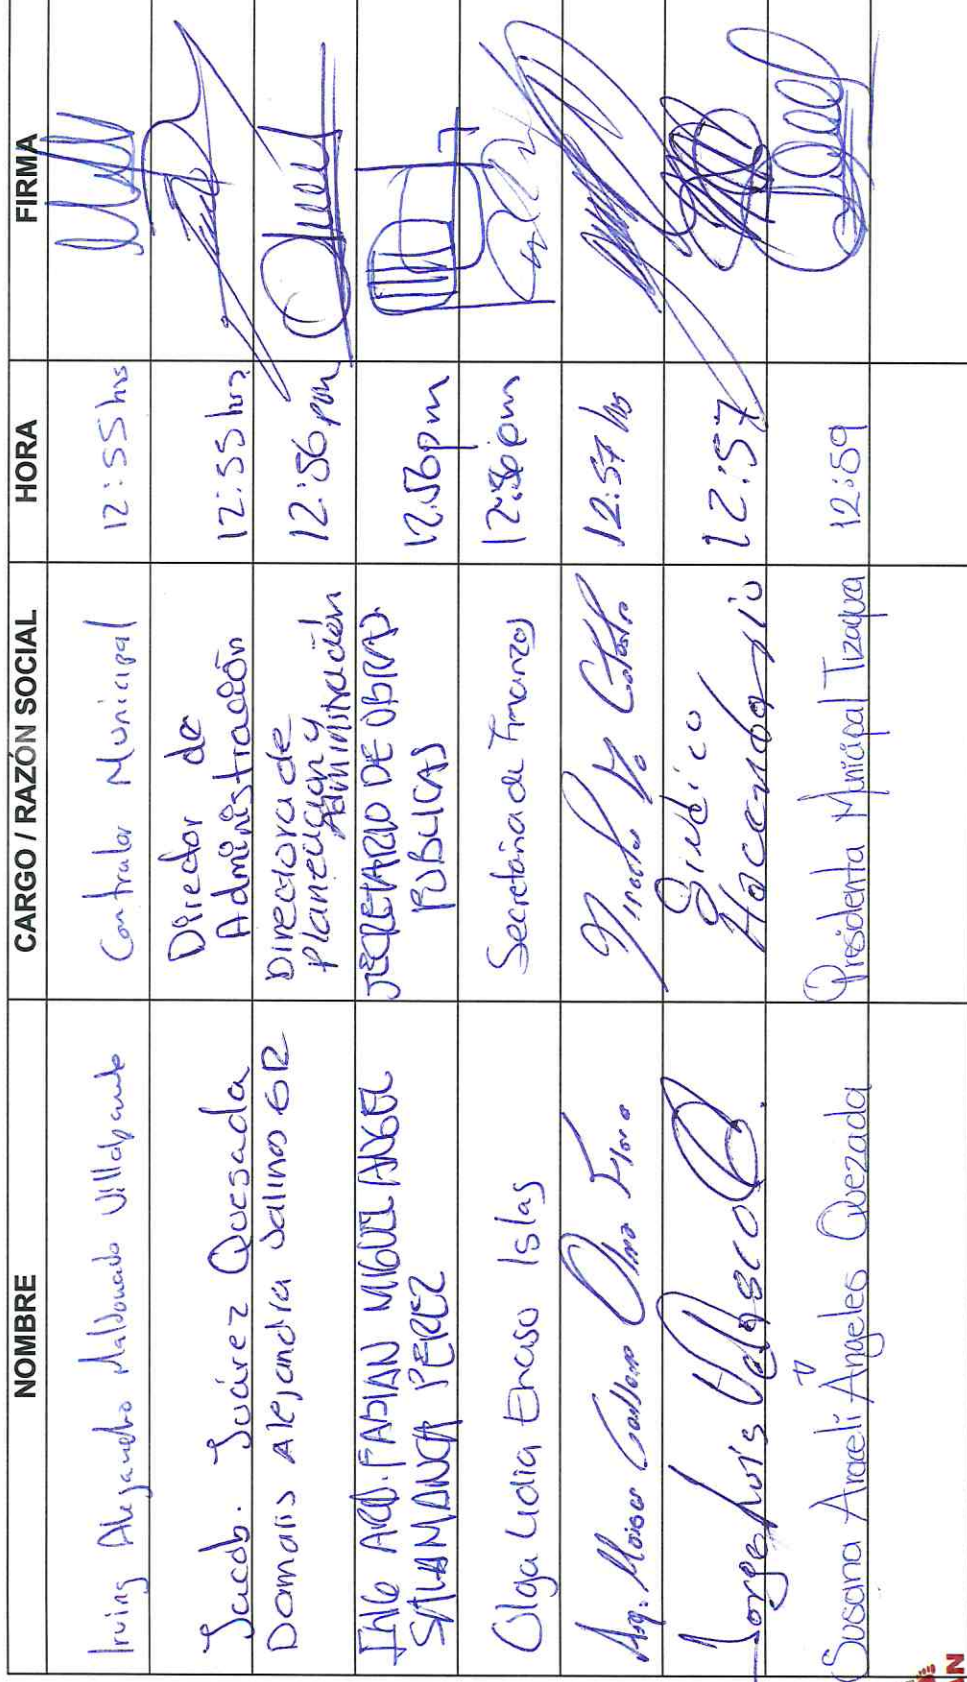 NOMBRE CARGO / RAZÓN SOCIAL HORA FIRMA
Irving Alejandro Maldonado Villalpando Contralor Municipal 12:55 hrs
Jacob. Juárez Quesada Director de Administración 12:55 hrs
Damaris Alejandra Salinas GR Directora de Planeación y Administración 12:56 pm
ING ARQ. FABIAN MIGUEL ANGEL SALAMANCA PÉREZ SECRETARIO DE OBRAS PUBLICAS 12:56pm
Olga Lidia Enciso Islas Secretaria de Finanzas 12:56pm
Arq. Moises 12:57 hrs
Jorge Luis Velasco Sindico Hacendario 12:57
Susana Araceli Ángeles Quezada Presidenta Municipal Tizayuca 12:59
AN